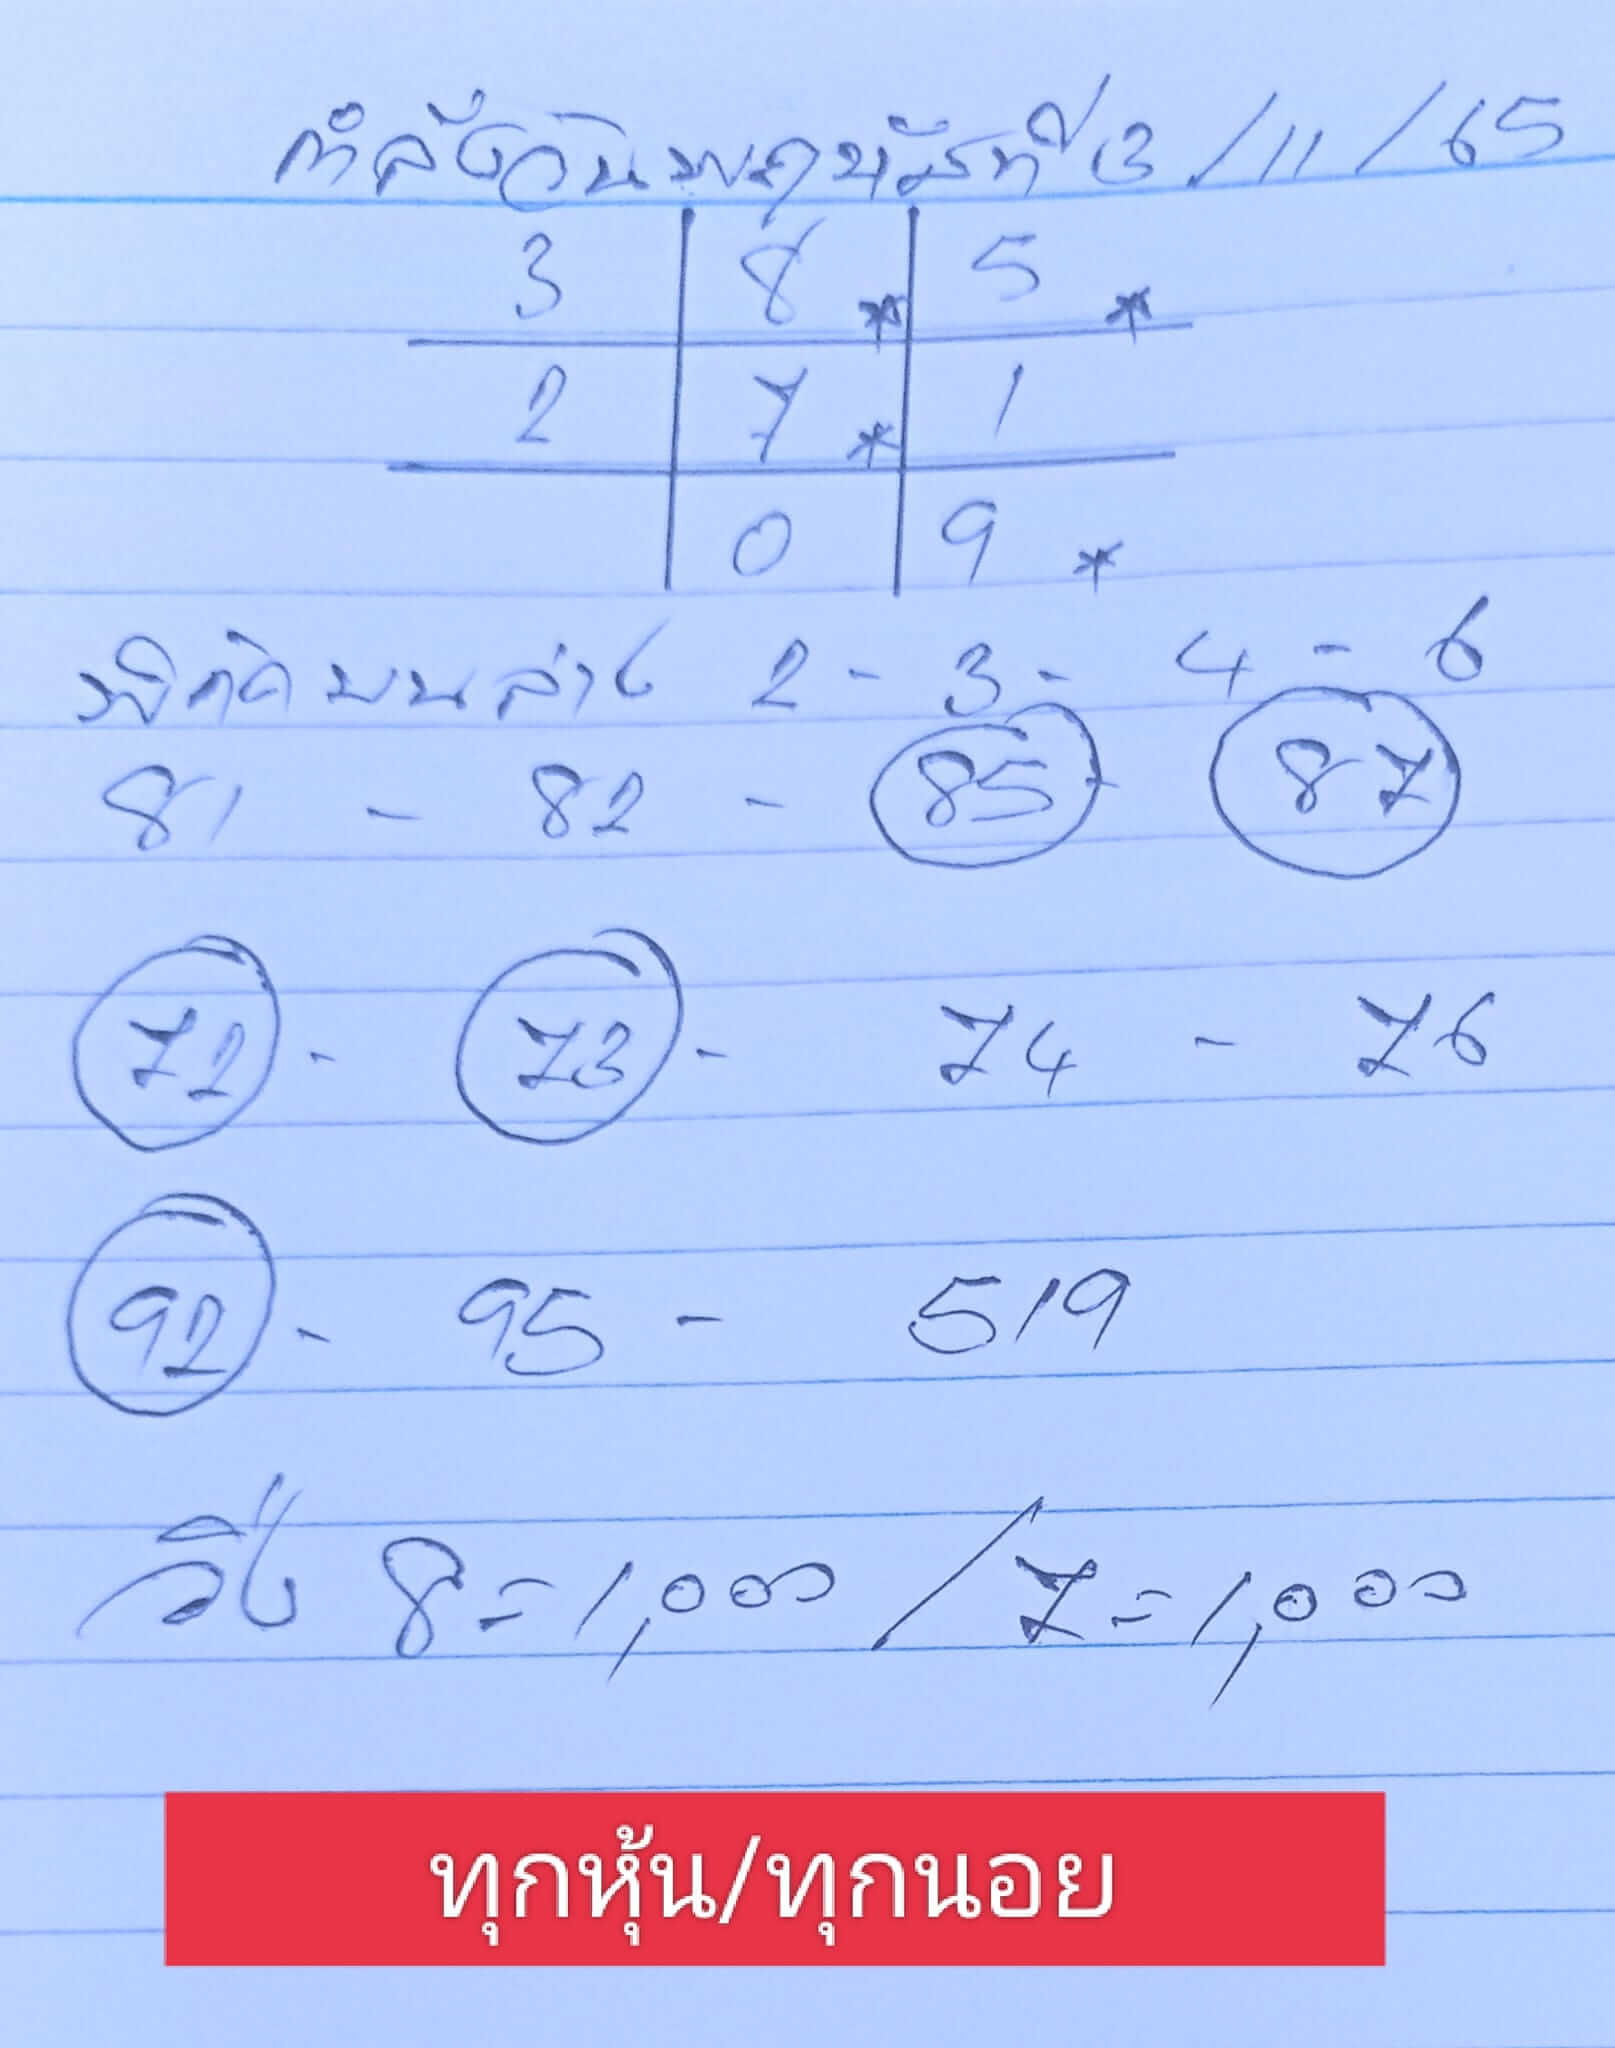 กำลังวันพฤหัสที่ 3/11/65
3 8* 5*
2 7* 1
0 9*
พิกัดบนล่าง 2 - 3 - 4 - 6
81 - 82 - 85 - 87
72 - 73 - 74 - 76
92 - 95 - 519
วิ่ง 8 = 1,000 / 7 = 1,000
ทุกหุ้น/ทุกนอย